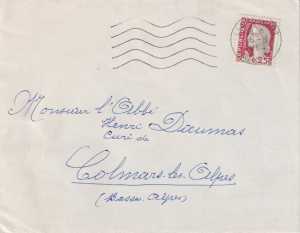 Monsieur l'Abbé
Henri Daumas
Curé de
Colmars-les-Alpes
(Basses-Alpes)
0,25